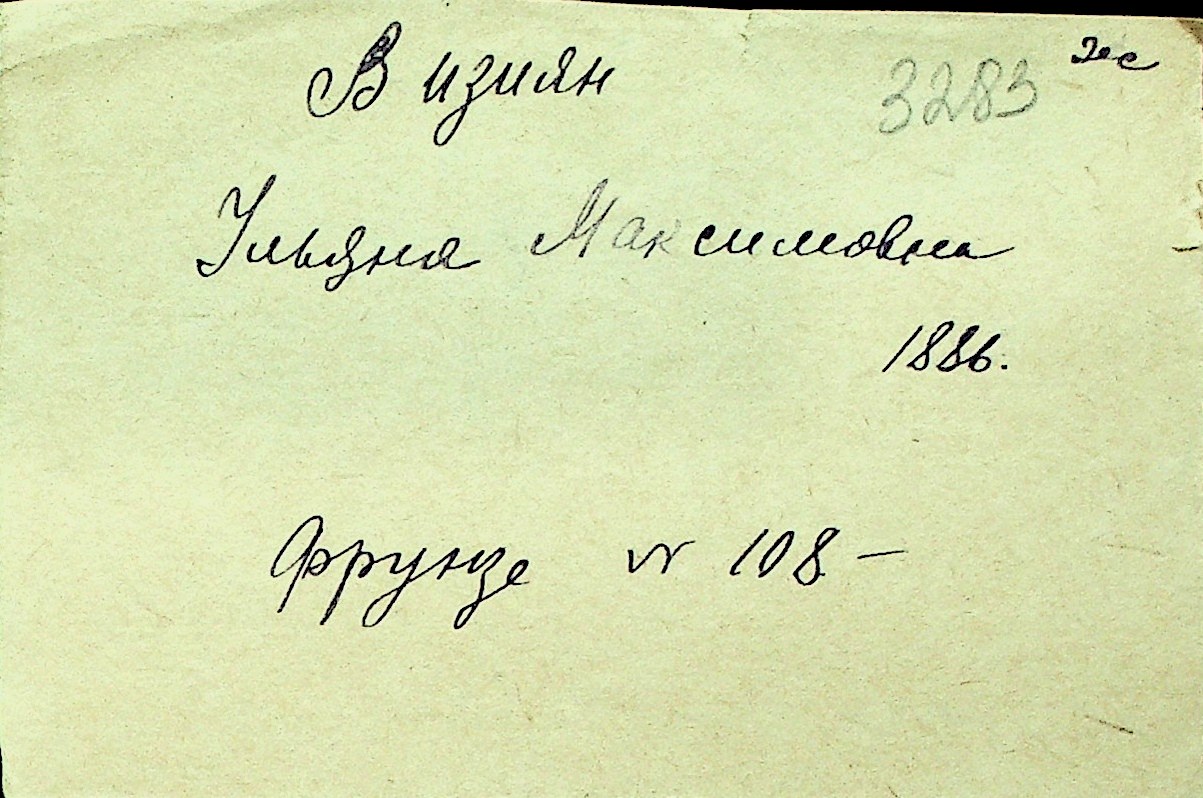 Визиян 3283
Ульяна Максимовна
1886.
Фрунзе № 108 –